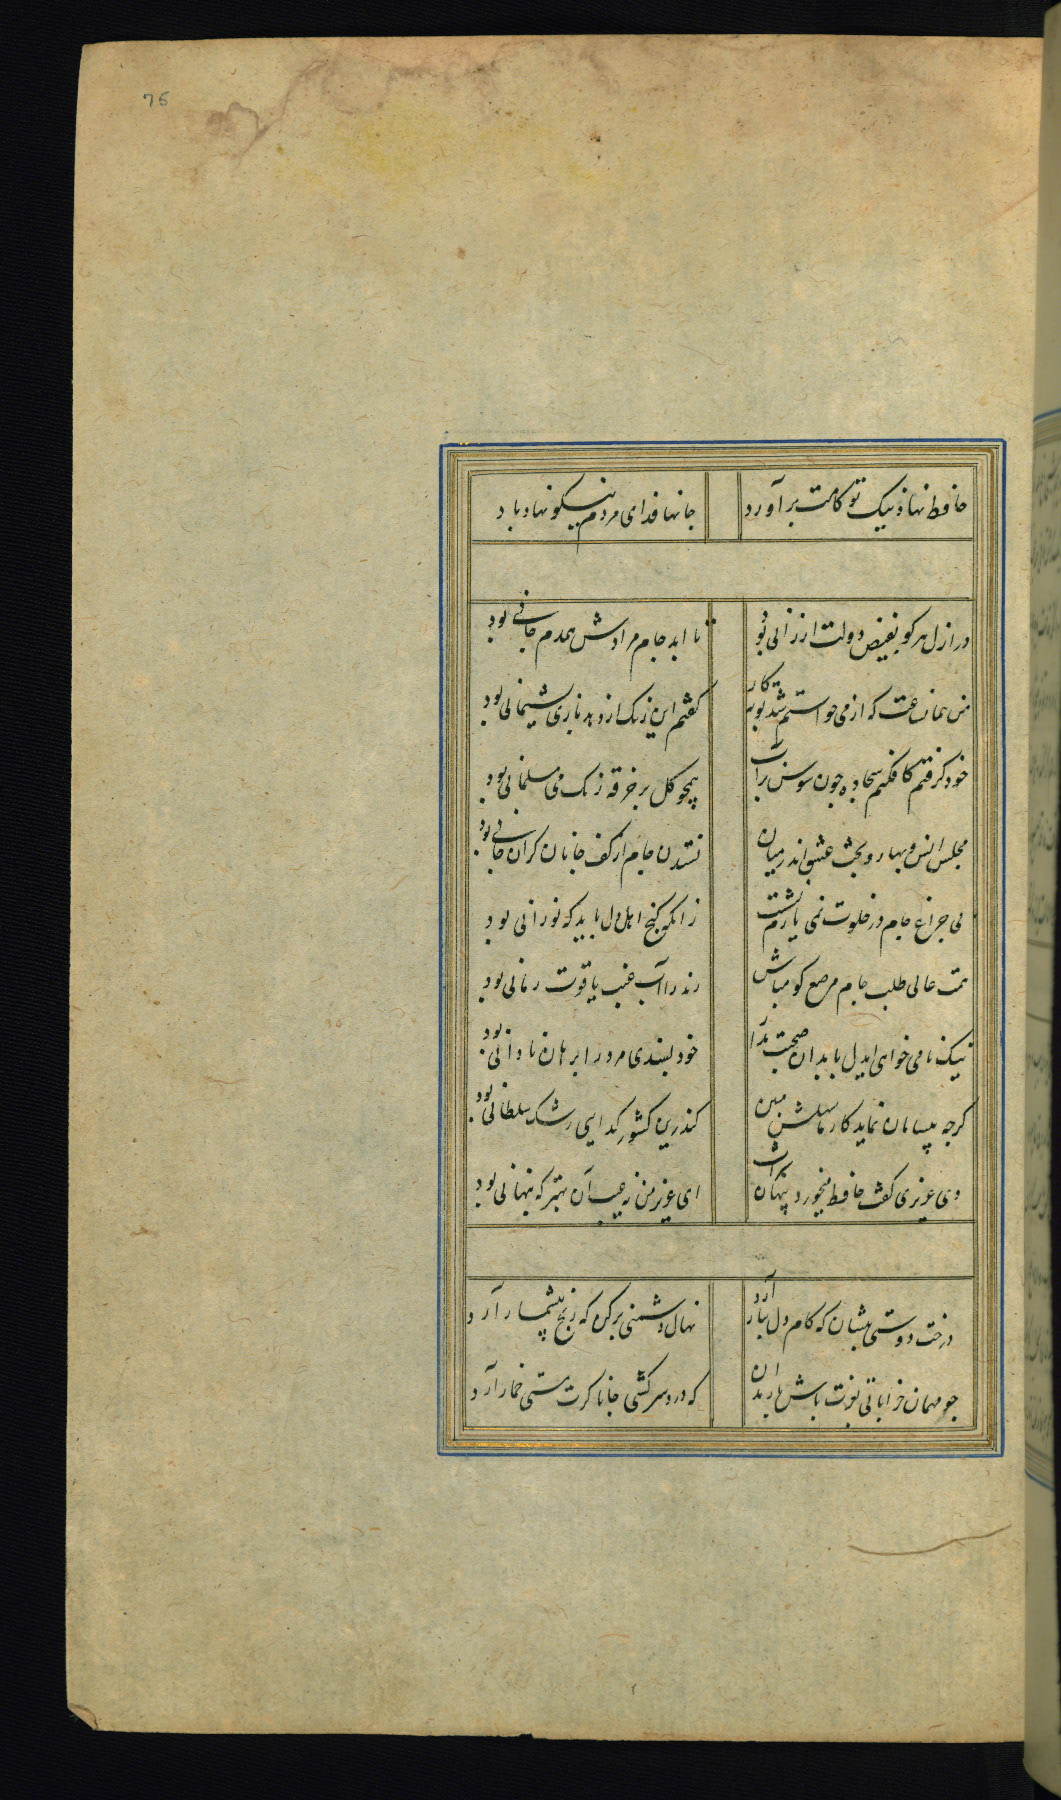 76
حافظ نهاد نیک تو کامت برآورد جانها فدای مردم نیکو نهاد باد
در ازل هر کو بفیض دولت ارزانی بود تا ابد جام مرادش همدم جانی بود
من همان ساعت که از می خواستم شد توبه کار گفتم این زنک ار دهد باری پشیمانی بود
خود کرفتم کافکنم سجاده جون سوسن بر آب همجو کل بر خرقه زنک می مسلمانی بود
مجلس انس و بهار و بحث عشق اندر میان نستدن جام از کف جانان کران جانی بود
بی جراغ جام در خلوت نمی یارم نشست زانکه کنج اهل دل باید که نورانی بود
همت عالی طلب جام مرصع کو مباش رند را آب عنب یاقوت رمانی بود
نیک نامی خواهی ایدل با بدان صحبت مدار خود پسندی مرد را برهان نادانی بود
کرجه بیسامان نماید کار ما سهلش مبین کندرین کشور کدایی رشک سلطانی بود
دی عزیزی کفت حافظ میخورد پنهان شراب ای عزیز من نه عیب آن بهتر که پنهانی بود
درخت دوستی بنشان که کام دل ببار آرد نهال دشمنی برکن که رنج بیشمار آرد
جو مهمان خراباتی بعزت باش با رندان که درد سر کشی جانا کرت مستی خمار آرد